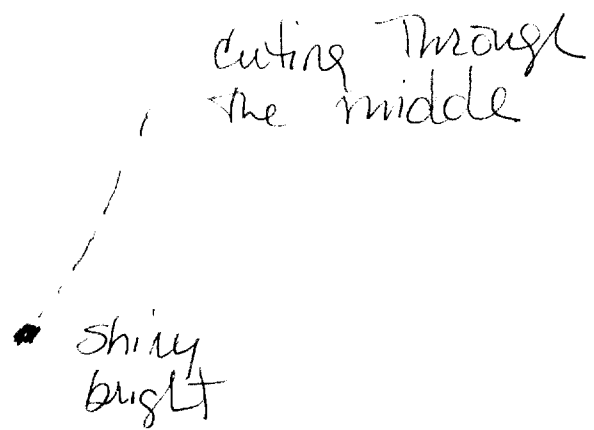 Cuting Through
The middle
Shiny
bright